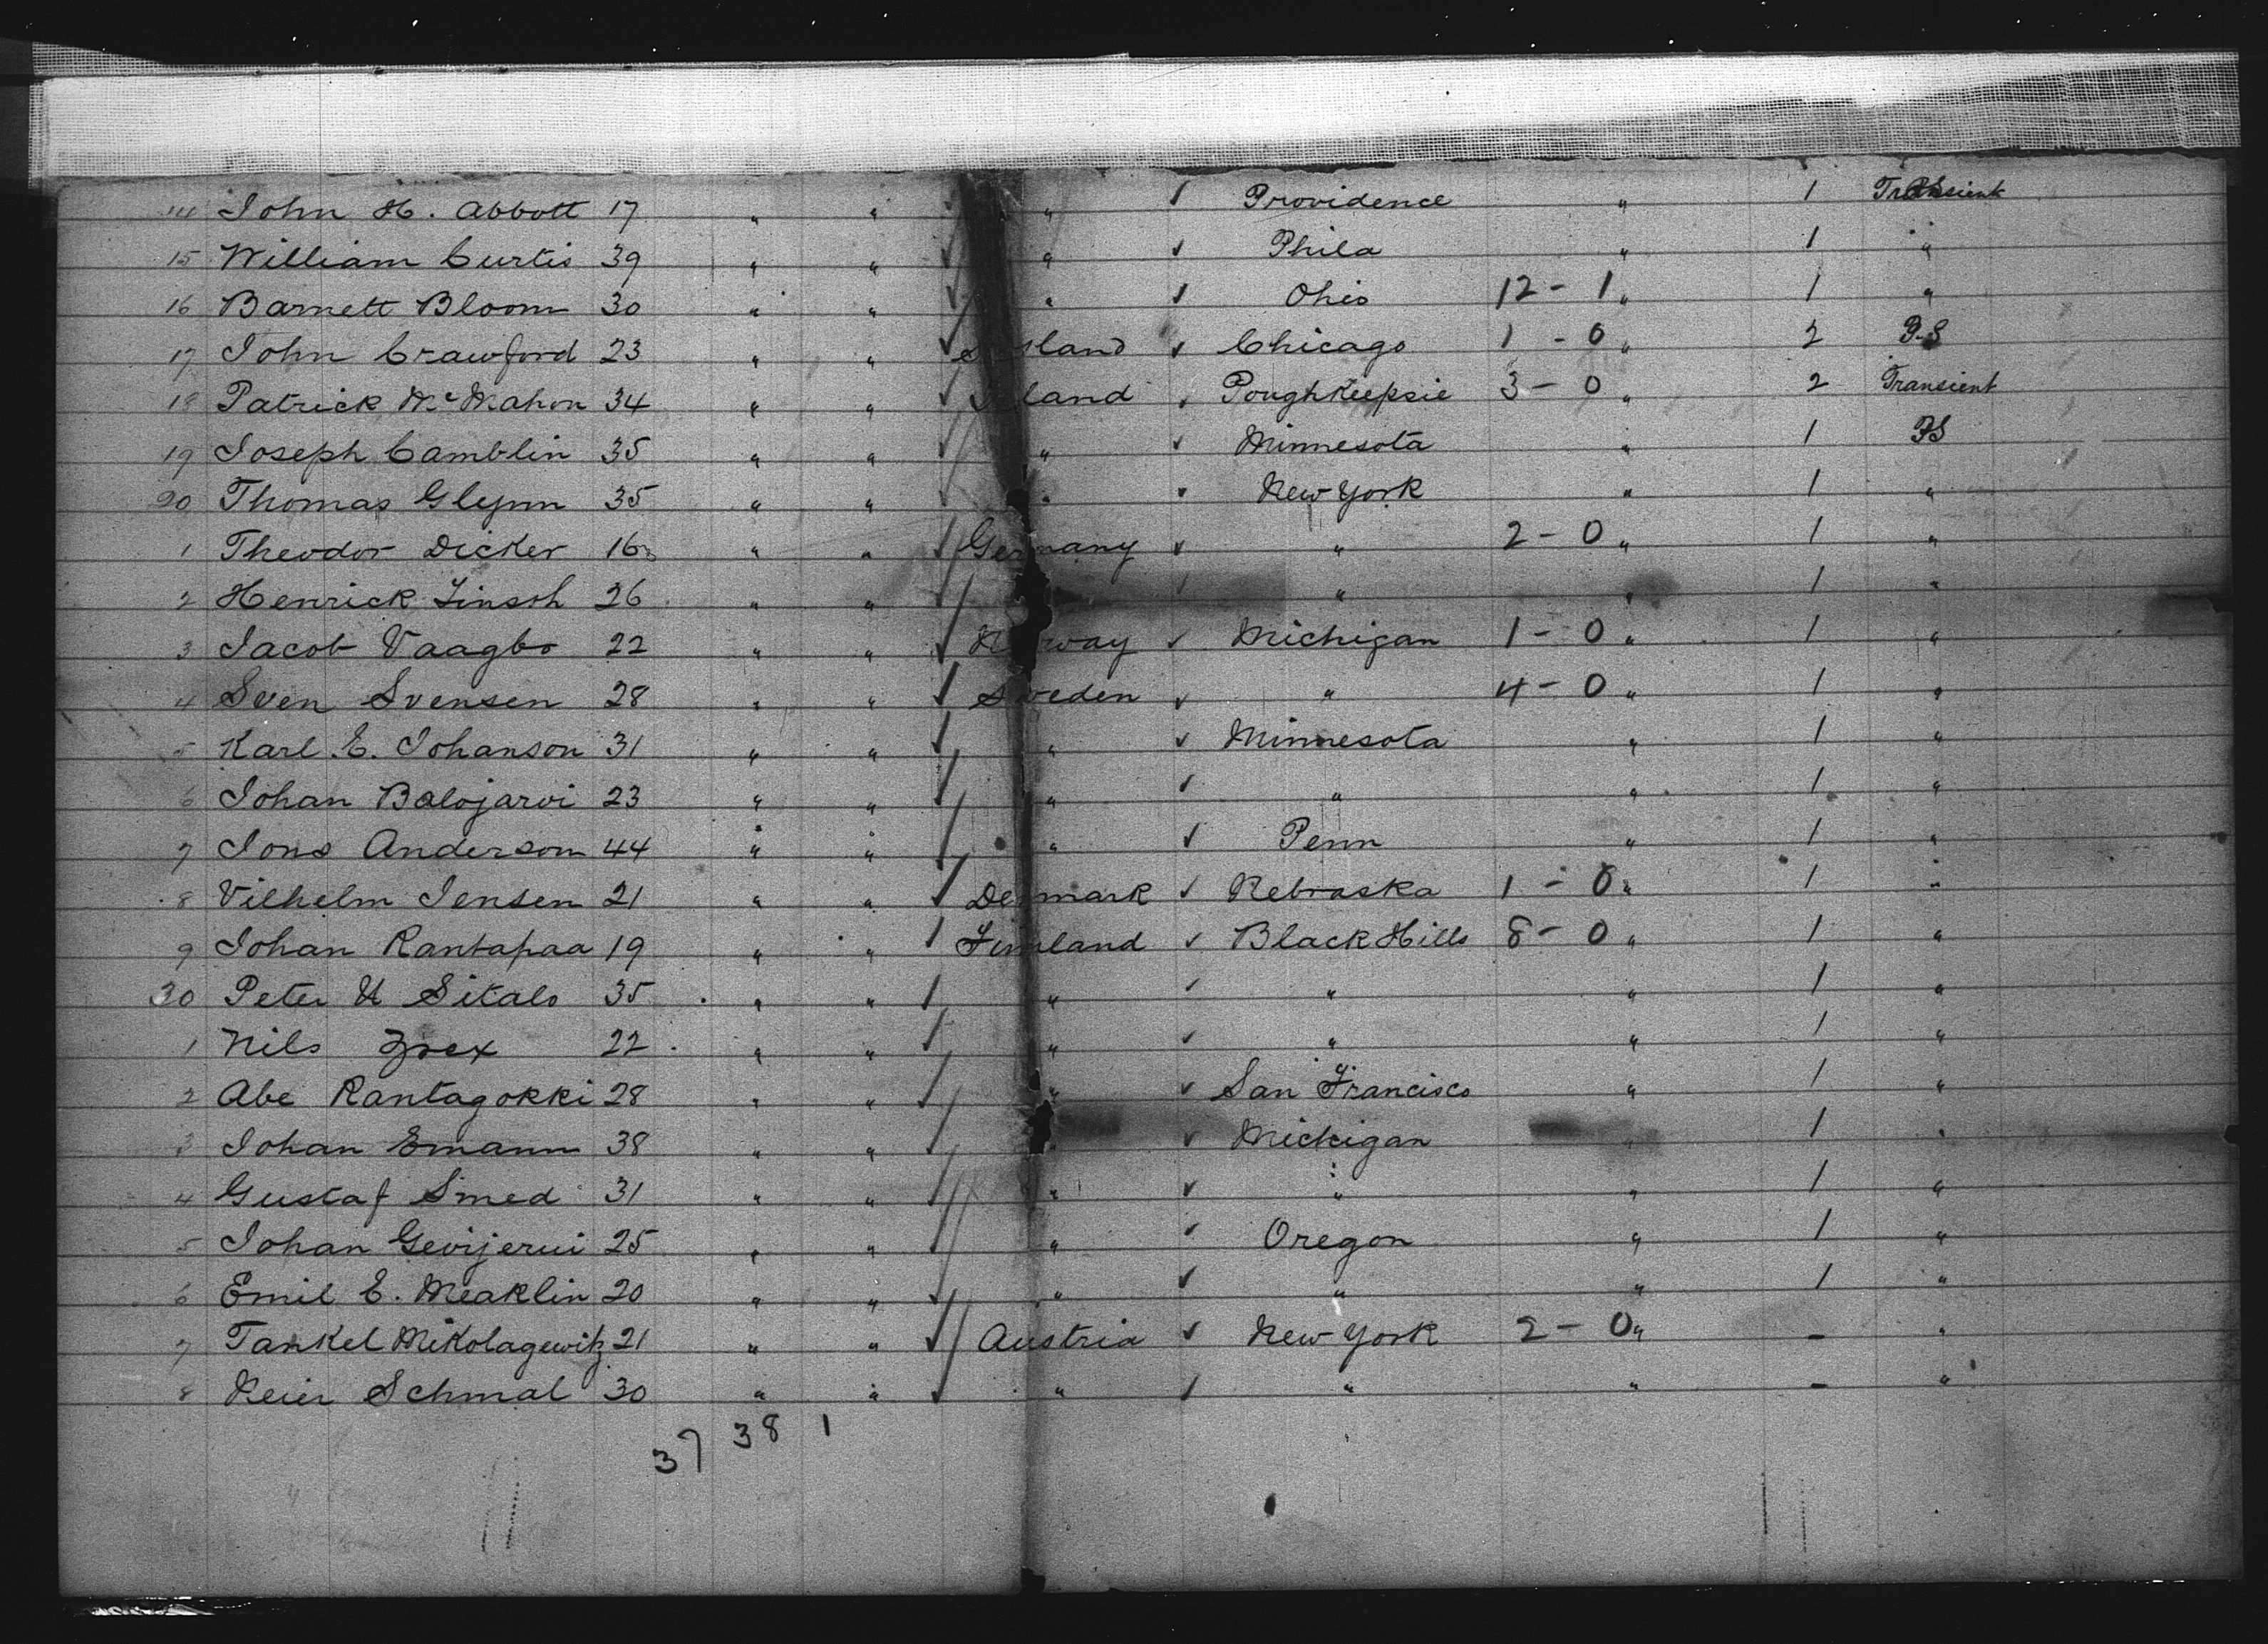 14 John H. Abbott 17 " " " Providence " 1 Transient
15 William Curtis 39 " " " Phila " 1 "
16 Barnett Bloom 30 " " " Ohio 12 - 1 " 1 "
17 John Crawford 23 " " land Chicago 1 - 0 " 2 P.S
18 Patrick McMahon 34 " " land Poughkeepsie 3 - 0 " 2 Transient
19 Joseph Camblin 35 " " " Minnesota " 1 PS
20 Thomas Glynn 35 " " " New York " 1 "
1 Theodor Dicker 16 " " Germany " 2 - 0 " 1 "
2 Henrick Linsoh 26 " " " " 1 "
3 Jacob Vaagbo 22 " " Norway Michigan 1 - 0 " 1 "
4 Sven Svensen 28 " " Sweden " 4 - 0 " 1 "
5 Karl E. Johanson 31 " " " Minnesota " 1 "
6 Johan Balojarvi 23 " " " " " 1 "
7 Jons Anderson 44 " " " Penn " 1 "
8 Vilhelm Jensen 21 " " Denmark Nebraska 1 - 0 " 1 "
9 Johan Rantapaa 19 " " Finnland Black Hills 8 - 0 " 1 "
30 Peter U Sikalo 35 " " " " " 1 "
1 Nils 22 " " " " " 1 "
2 Abe Rantagokki 28 " " " San Francisco " 1 "
3 Johan Emann 38 " " " Michigan " 1 "
4 Gustaf Smed 31 " " " " " 1 "
5 Johan Gevijerui 25 " " " Oregon " 1 "
6 Emil E. Meaklin 20 " " " " " 1 "
7 Tankel Mikolagewitz 21 " " Austria New York 2 - 0 " - "
8 Neier Schmal 30 " " " " " - "
37 38 1